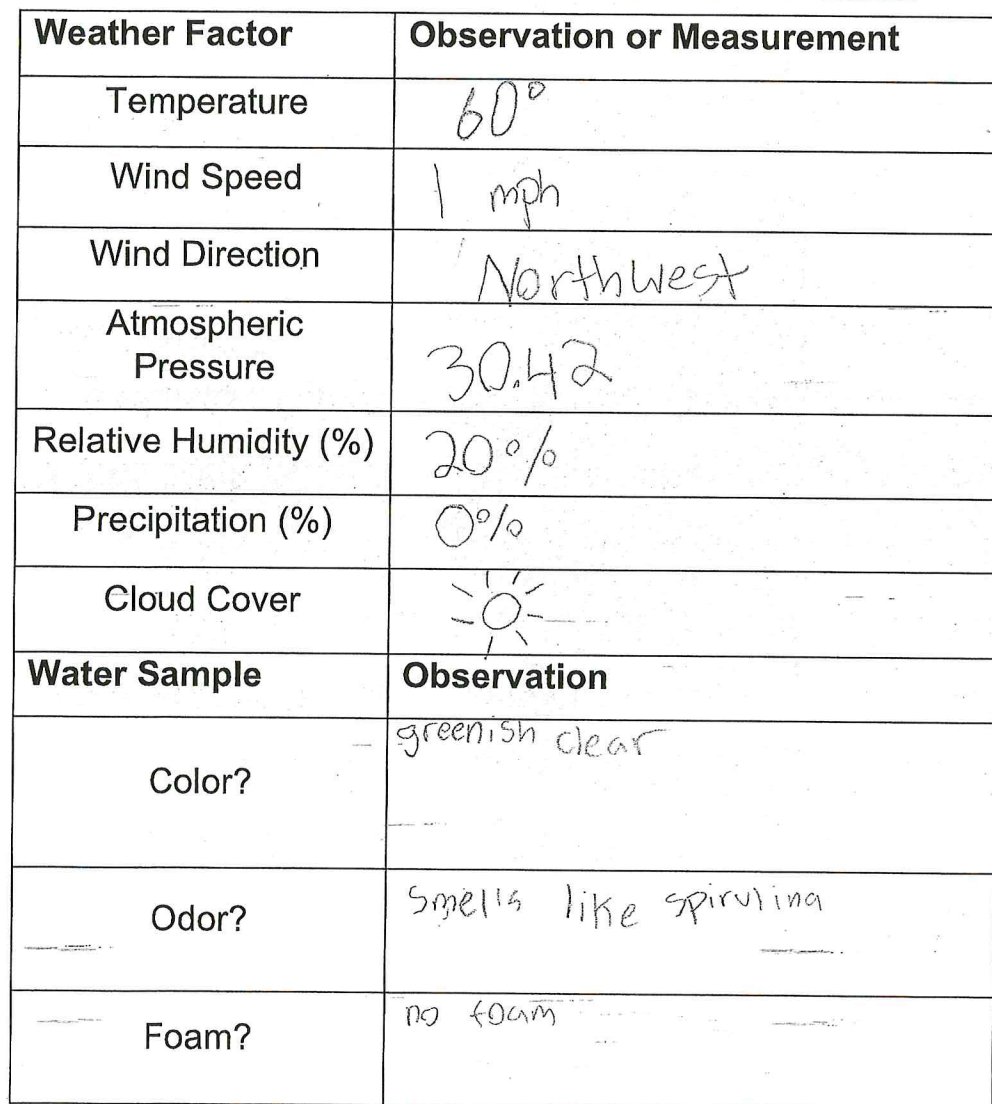 Weather Factor Observation or Measurement
Temperature 60°
Wind Speed 1 mph
Wind Direction Northwest
Atmospheric
Pressure 30.42
Relative Humidity (%) 20%
Precipitation (%) 0%
Cloud Cover
Water Sample Observation
Color? greenish clear
Odor? Smells like spirulina
Foam? no foam